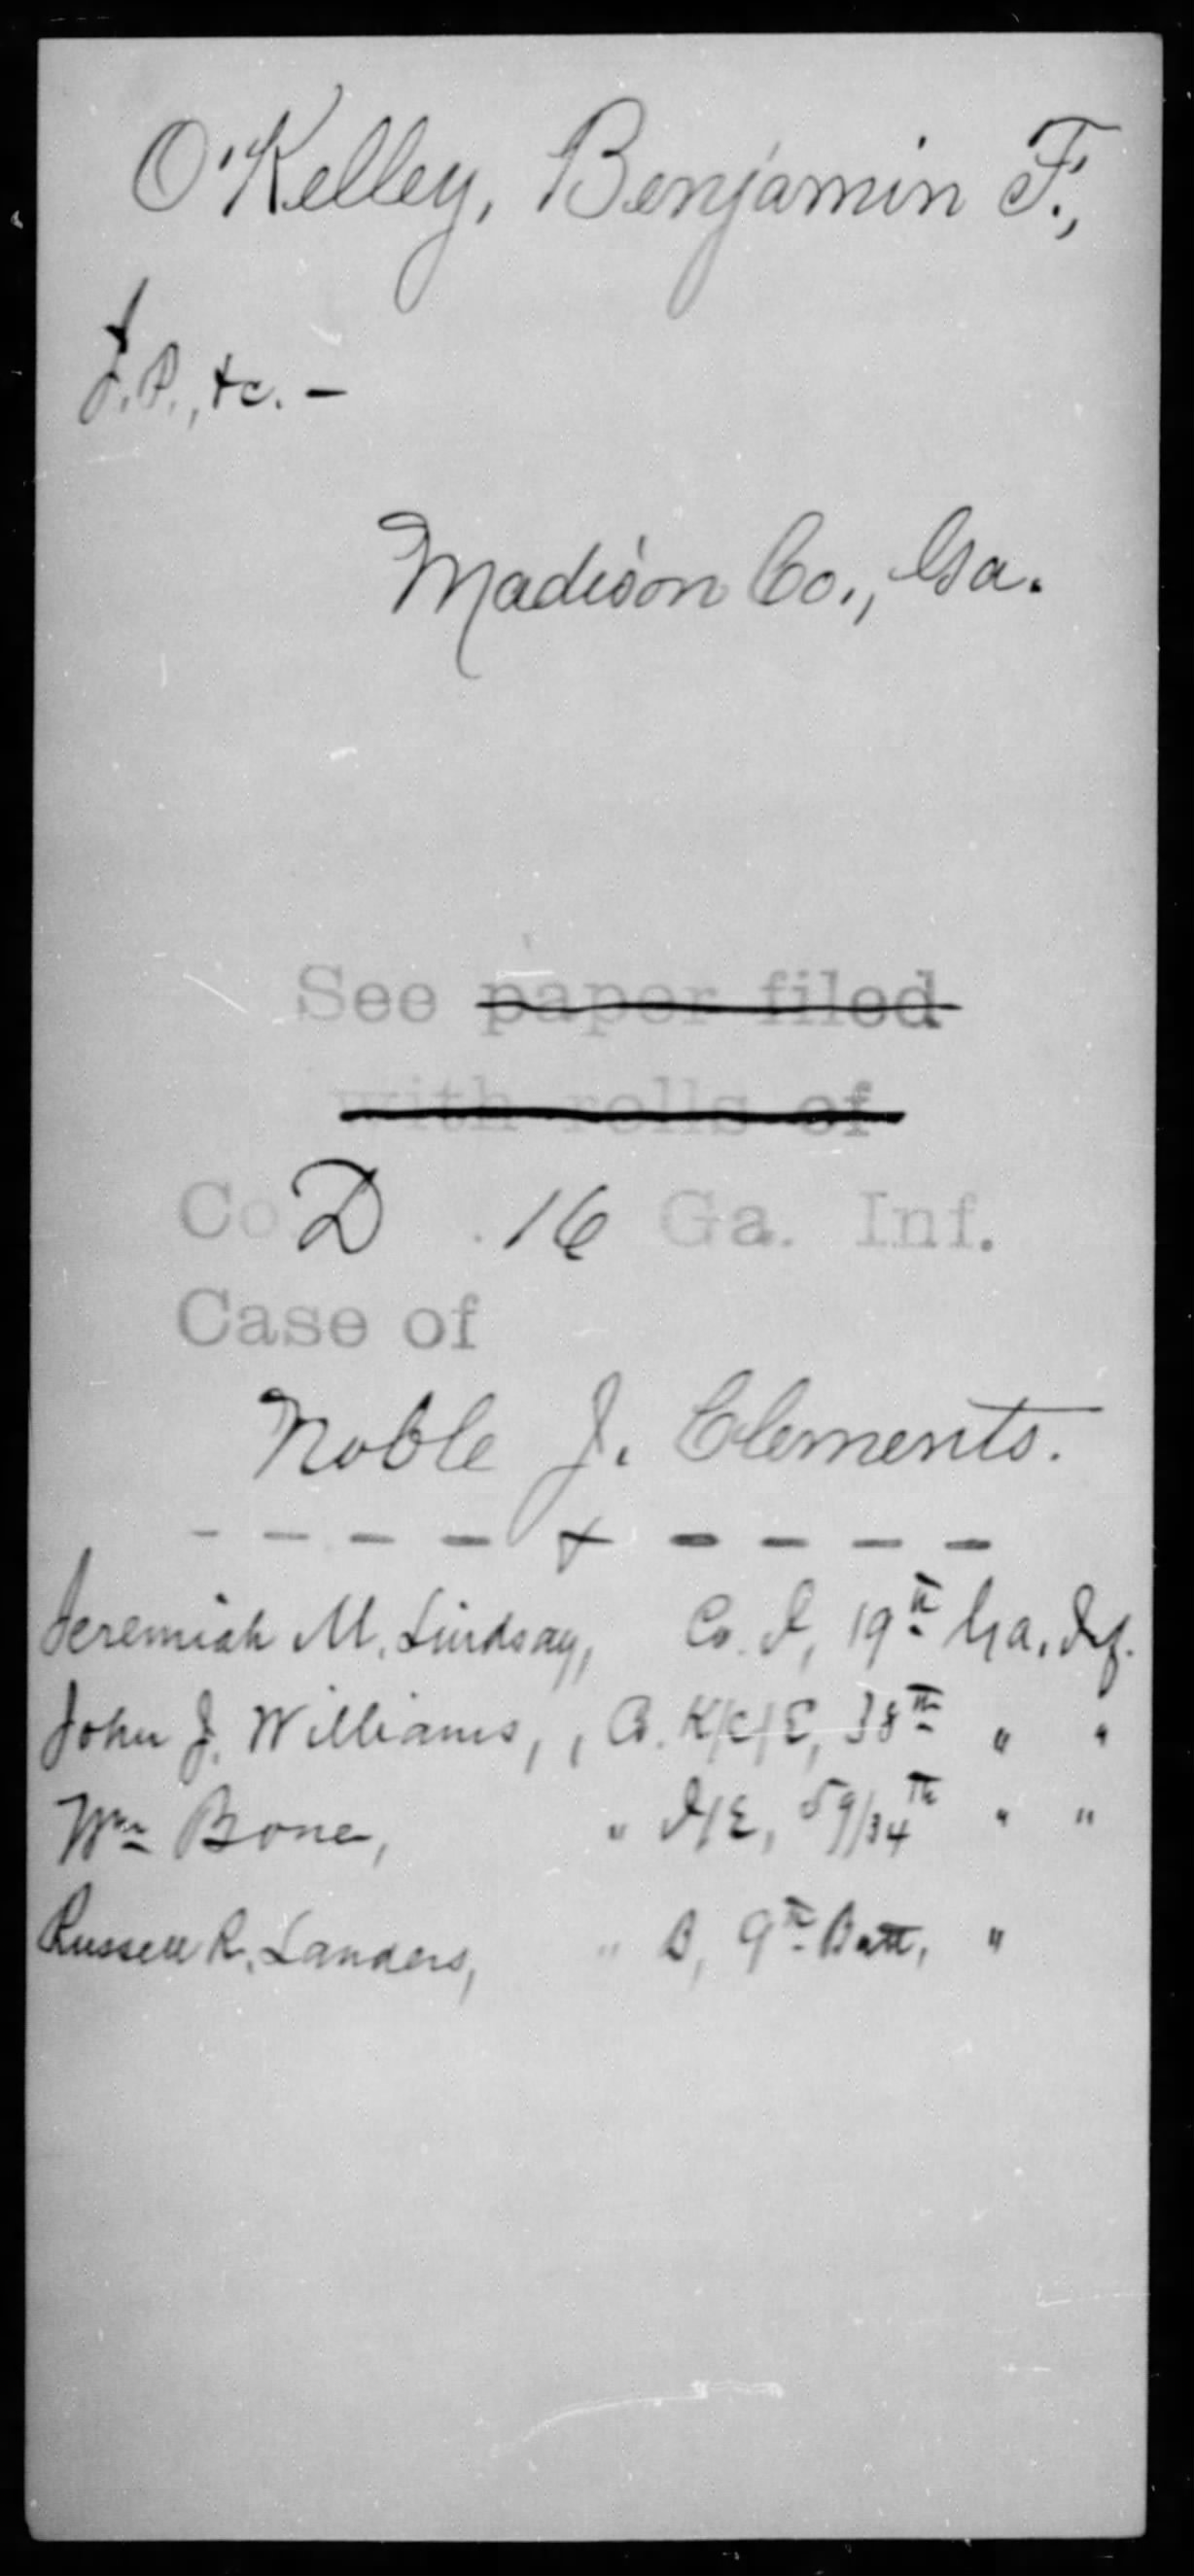 O'Kelley, Benjamin F.,
J.P., &c. —
Madison Co., Ga.
See paper filed
with rolls of
Co D 16 Ga. Inf.
Case of
Noble J. Clements.
Jeremiah M. Lindsay, Co. I, 19th Ga. Inf.
John J. Williams, , Co. K/C/E, 38th " "
Wm Bone, " I/E, 59/34th " "
Russell R. Landers, " B, 9th Batt, "